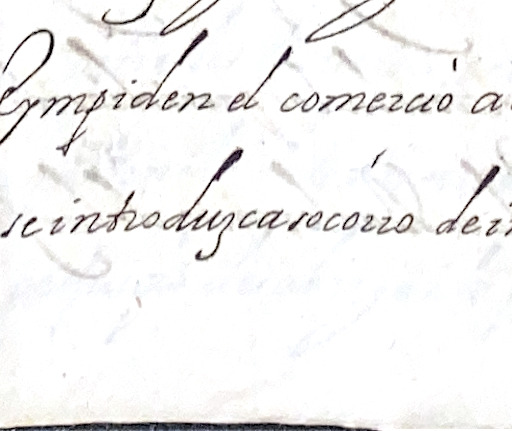 Ympiden el comercio a
se introduzca socorro de